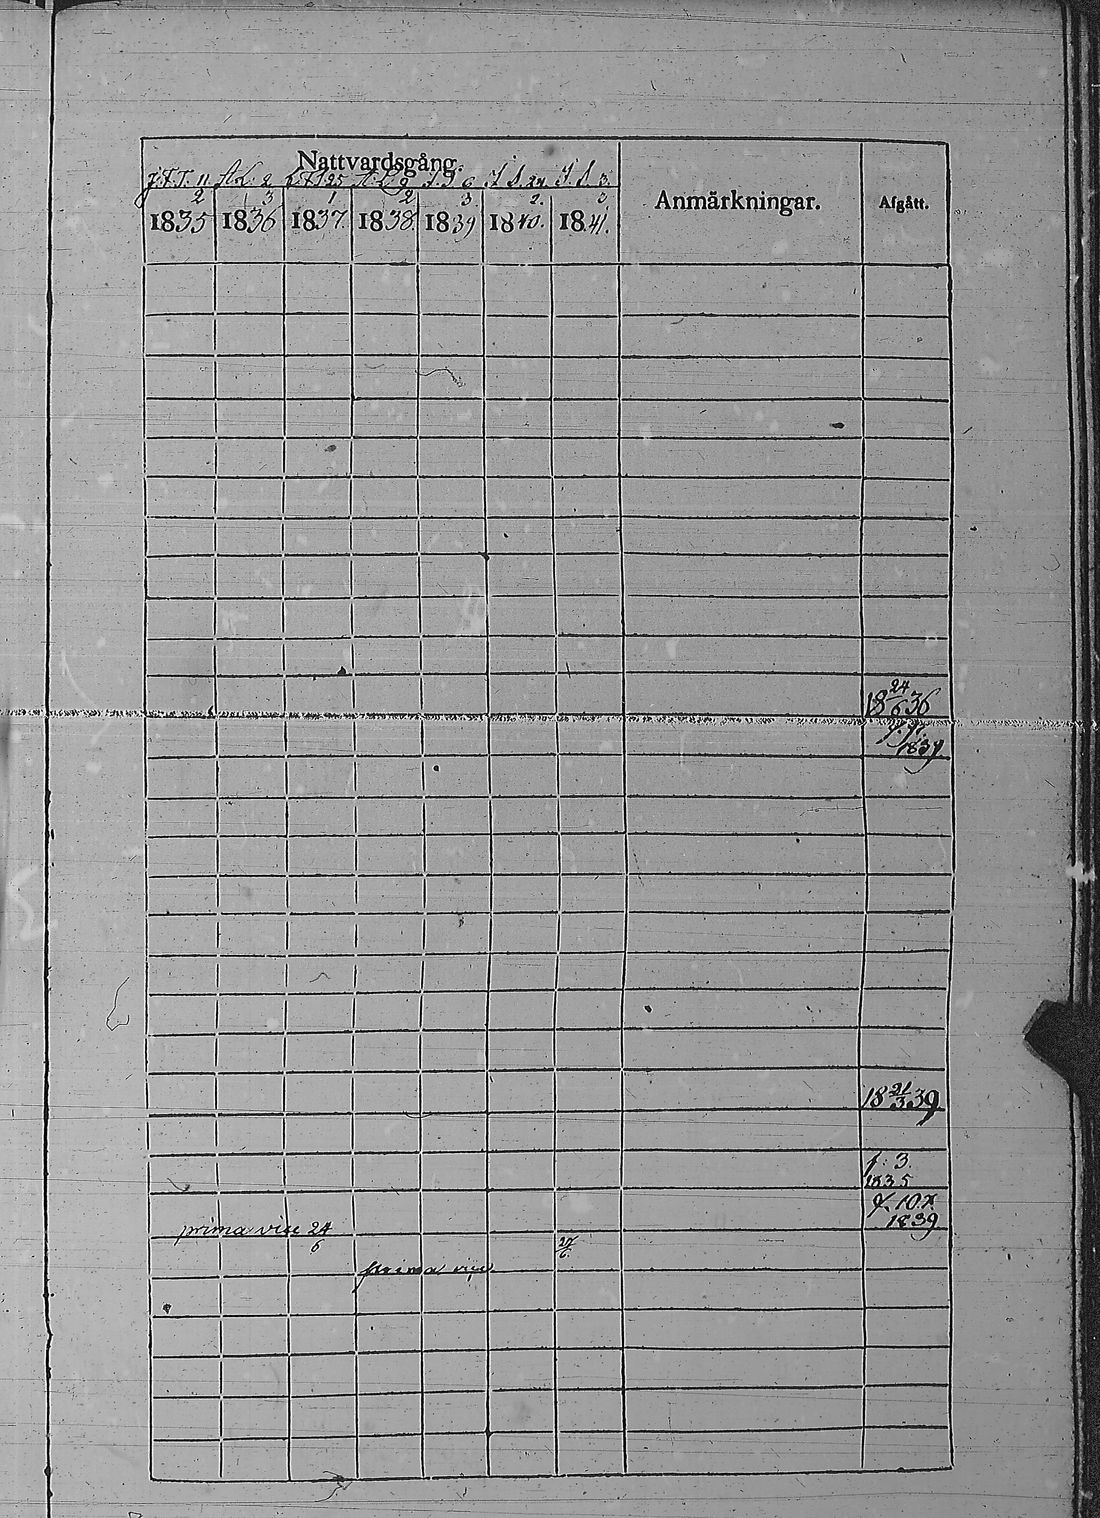 Nattvardsgång.
2 3 1 2 3. 2. 3
1835 1836 1837. 1838. 1839 1840. 1841.
Anmärkningar. Afgått.
18 24/6 36
1839
18 21/3 39
f: 3.
1835
1839
prima vice 24/6
27/6.
prima vice